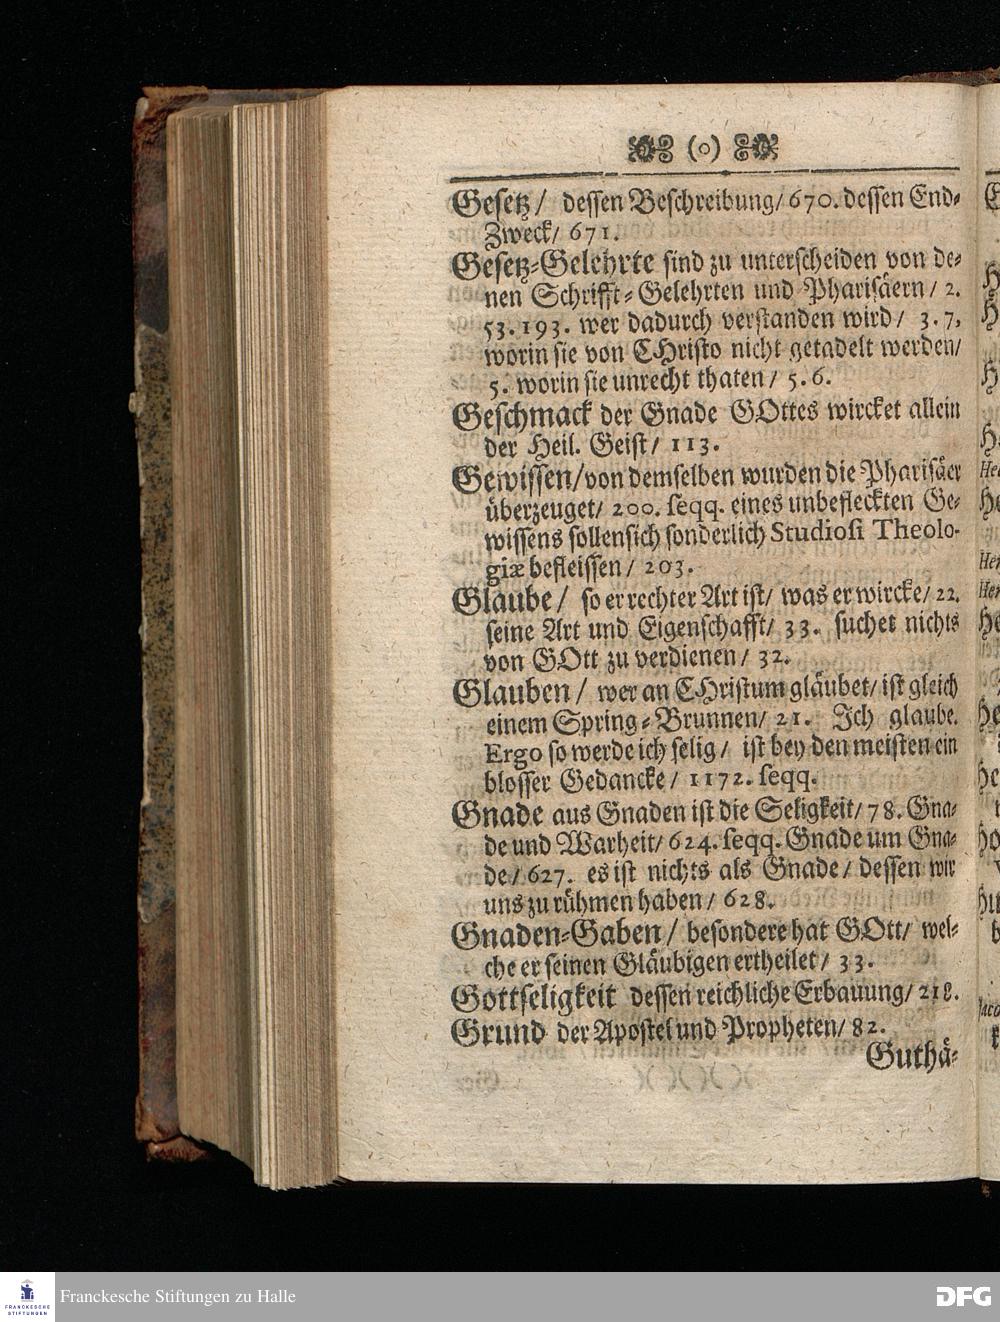 (o)
Gesetz/ dessen Beschreibung/ 670. dessen End-
Zweck/ 671.
Gesetz-Gelehrte sind zu unterscheiden von de-
nen Schrifft-Gelehrten und Pharisäern/ 2.
53. 193. wer dadurch verstanden wird/ 3. 7,
worin sie von CHristo nicht getadelt werden/
5. worin sie unrecht thaten/ 5. 6.
Geschmack der Gnade GOttes wircket allein
der Heil. Geist/ 113.
Gewissen/ von demselben wurden die Pharisäer
überzeuget/ 200. seqq. eines unbefleckten Ge-
wissens sollen sich sonderlich Studiosi Theolo-
giæ befleissen/ 203.
Glaube/ so er rechter Art ist/ was er wircke/ 22.
seine Art und Eigenschafft/ 33. suchet nichts
von GOtt zu verdienen/ 32.
Glauben/ wer an CHristum gläubet/ ist gleich
einem Spring-Brunnen/ 21. Ich glaube.
Ergo so werde ich selig/ ist bey den meisten ein
blosser Gedancke/ 1172. seqq.
Gnade aus Gnaden ist die Seligkeit/ 78. Gna-
de und Warheit/ 624. seqq. Gnade um Gna-
de/ 627. es ist nichts als Gnade/ dessen wir
uns zu rühmen haben/ 628.
Gnaden-Gaben/ besondere hat GOtt/ wel-
che er seinen Gläubigen ertheilet/ 33.
Gottseligkeit dessen reichliche Erbauung/ 218.
Grund der Apostel und Propheten/ 82.
Guthä-
FRANCKESCHE
STIFTUNGEN
Franckesche Stiftungen zu Halle
DFG